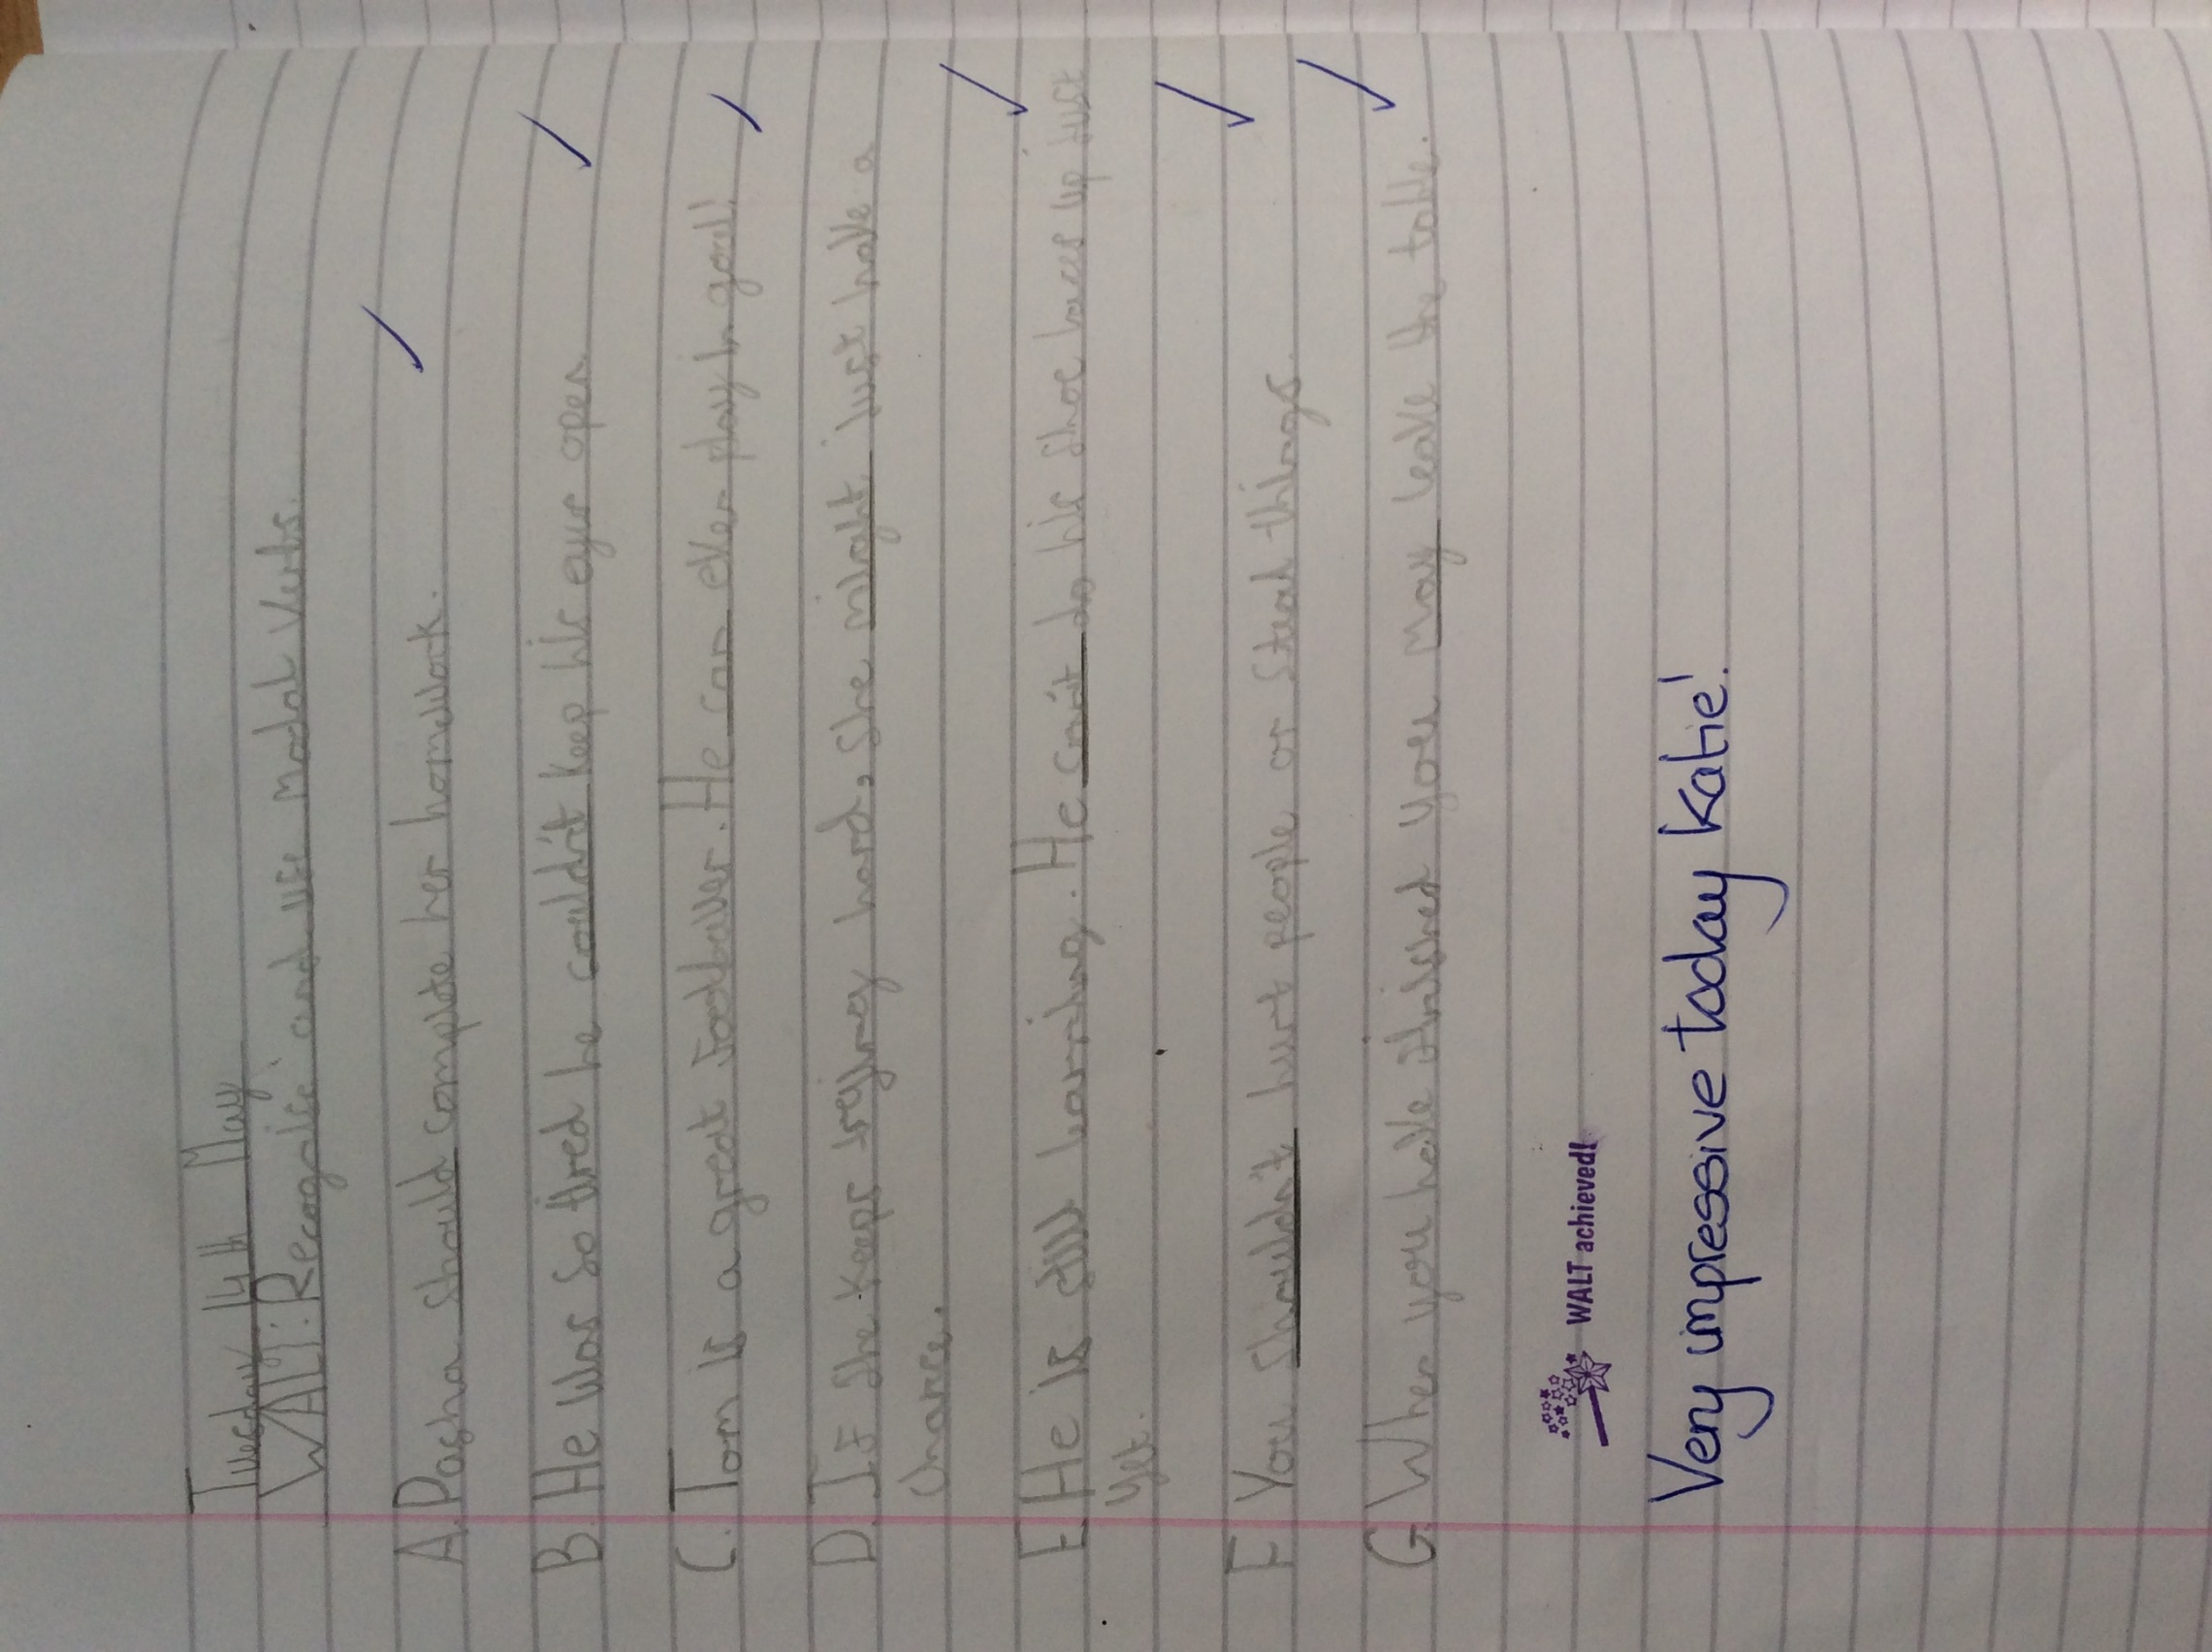 Tuesday 14th May
WALT: Recognise and use modal verbs.
A. Pasha should complete her homework.
B. He was so tired he couldn't keep his eyes open.
C. Tom is a great footballer. He can even play in goal!
D. If she keeps trying hard, she might just have a
chance.
E He is still learning. He can't do his shoe laces up just
yet.
F You shouldn't hurt people or steal things.
G. When you have finished you may leave the table.
WALT achieved!
Very impressive today Katie!